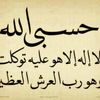 حسبي الله
لا اله الا هو عليه توكلت
وهو رب العرش العظيم